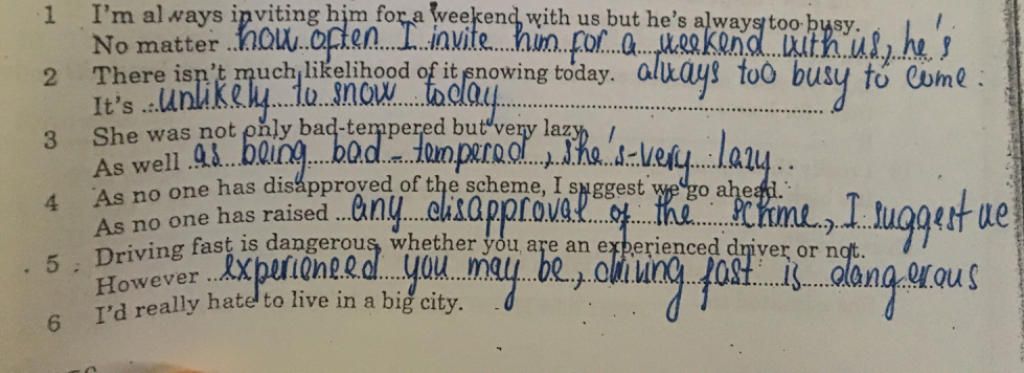 1 I'm always inviting him for a weekend with us but he's always too busy.
No matter how often I invite him for a weekend with us, he's
always too busy to come.
2 There isn't much likelihood of it snowing today.
It's unlikely to snow today
3 She was not only bad-tempered but very lazy.
As well as being bad-tempered, she's very lazy..
4 As no one has disapproved of the scheme, I suggest we go ahead.
As no one has raised any disapproval of the scheme, I suggest we
5 Driving fast is dangerous, whether you are an experienced driver or not.
However experienced you may be, driving fast is dangerous
6 I'd really hate to live in a big city.